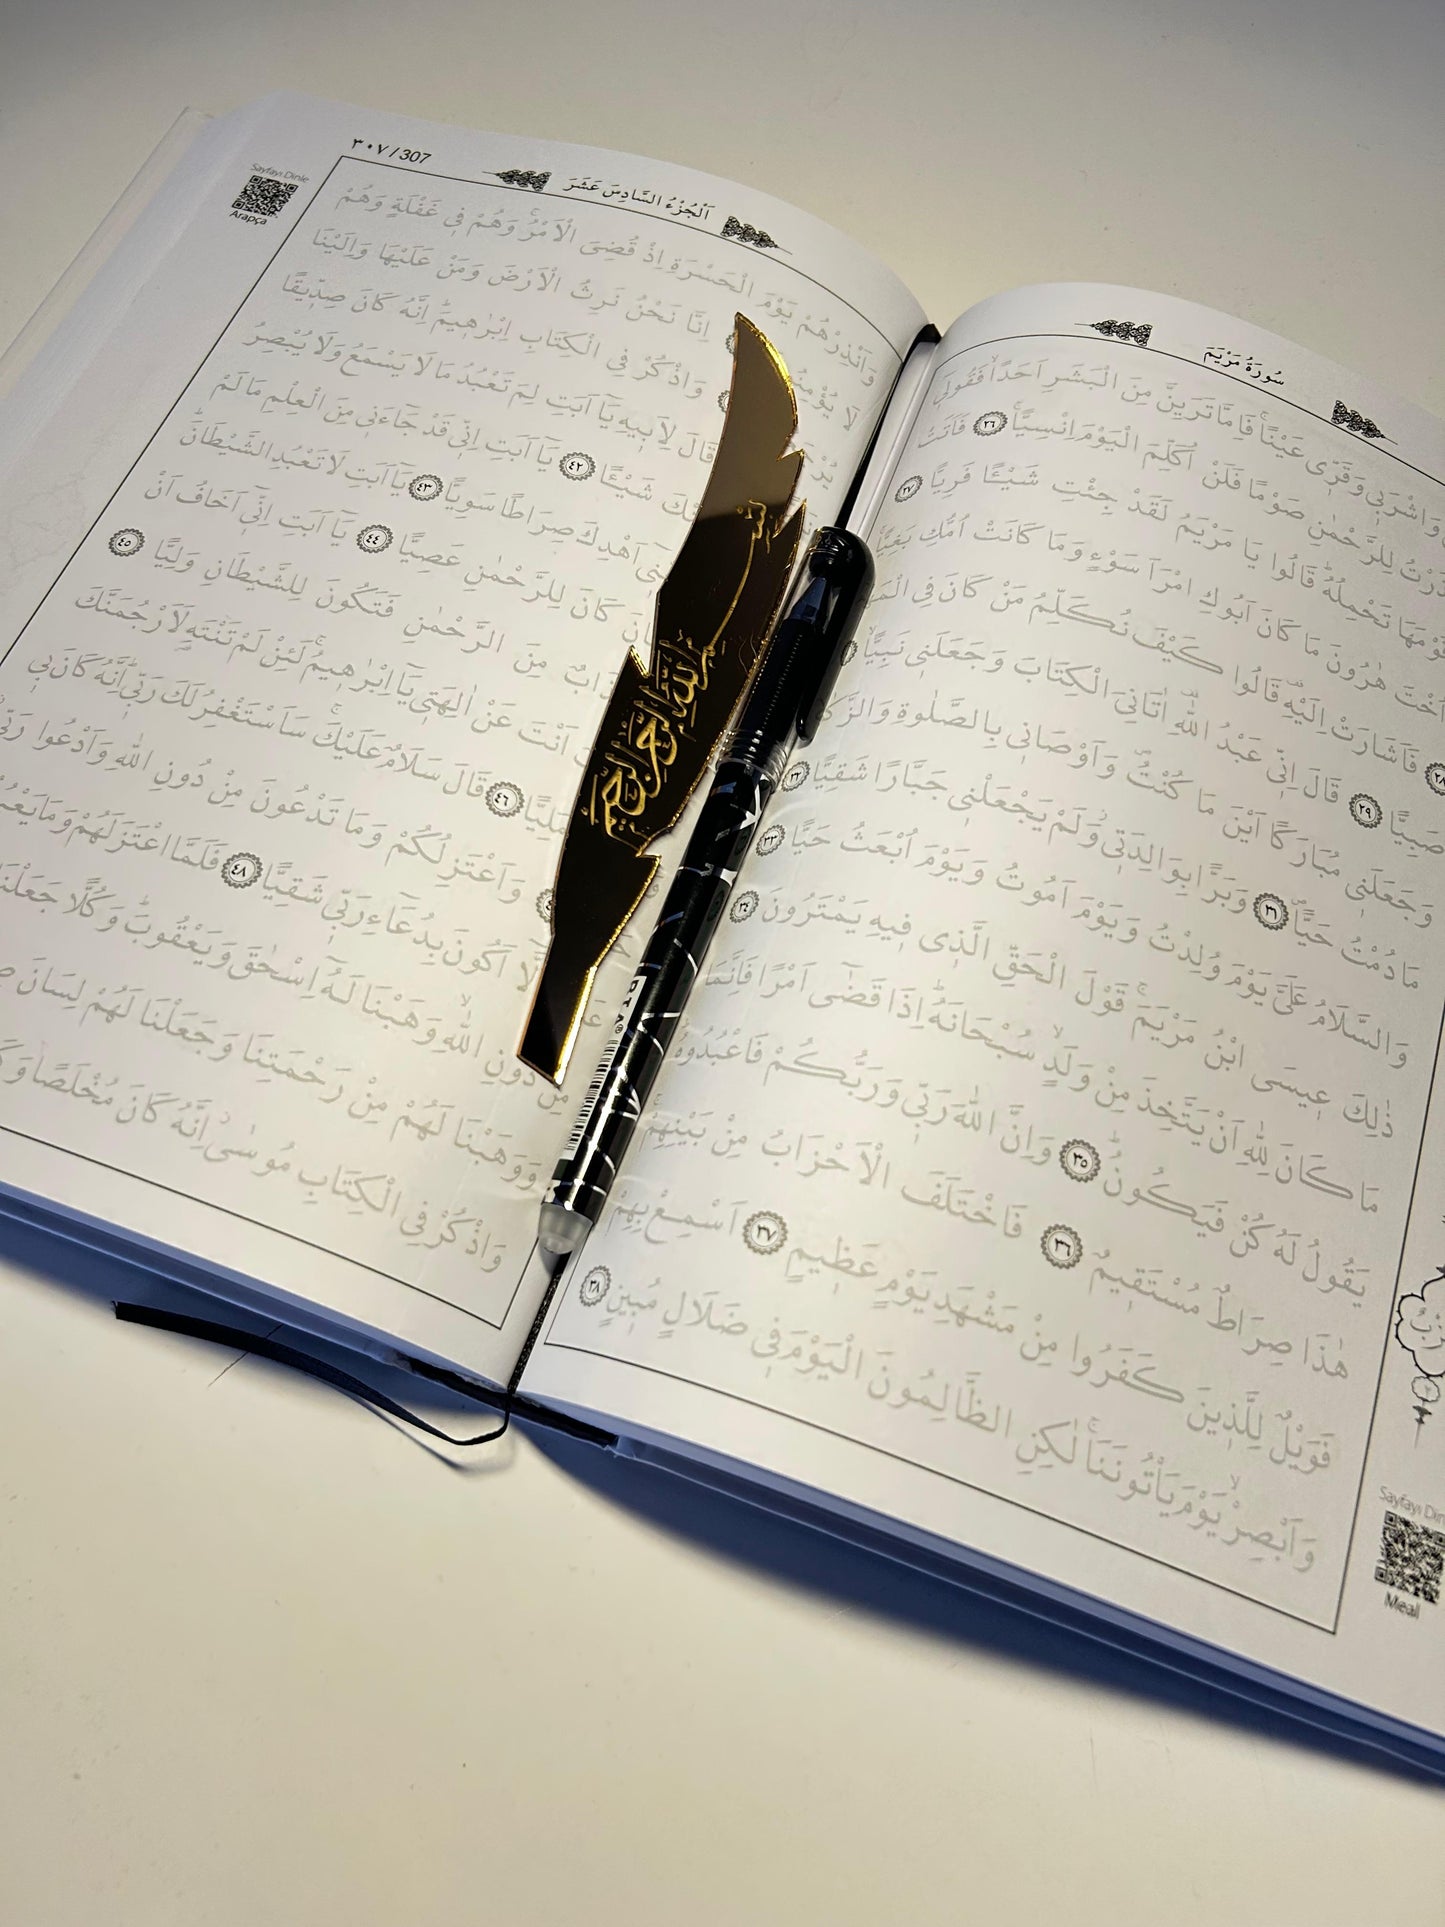 سُورَةُ مَرْيَمَ
وَاشْرَبِي وَقَرِّي عَيْنًاۚ فَاِمَّا تَرَيِنَّ مِنَ الْبَشَرِ اَحَدًاۙ فَقُولِي
لِلرَّحْمٰنِ صَوْمًا فَلَنْ اُكَلِّمَ الْيَوْمَ اِنْسِيًّاۚ ٢٦ فَاَتَتْ
قَوْمَهَا تَحْمِلُهُۜ قَالُوا يَا مَرْيَمُ لَقَدْ جِئْتِ شَيْـًٔا فَرِيًّا ٢٧
اُخْتَ هٰرُونَ مَا كَانَ اَبُوكِ امْرَاَ سَوْءٍ وَمَا كَانَتْ اُمُّكِ بَغِيًّا
٢٨ فَاَشَارَتْ اِلَيْهِۜ قَالُوا كَيْفَ نُكَلِّمُ مَنْ كَانَ فِي
صَبِيًّا ٢٩ قَالَ اِنِّي عَبْدُ اللّٰهِۜ اٰتَانِيَ الْكِتَابَ وَجَعَلَنِي نَبِيًّاۙ
وَجَعَلَنِي مُبَارَكًا اَيْنَ مَا كُنْتُۖ وَاَوْصَانِي بِالصَّلٰوةِ
مَا دُمْتُ حَيًّاۖ ٣١ وَبَرًّا بِوَالِدَتِيۘ وَلَمْ يَجْعَلْنِي جَبَّارًا شَقِيًّا ٣٢
وَالسَّلَامُ عَلَيَّ يَوْمَ وُلِدْتُ وَيَوْمَ اَمُوتُ وَيَوْمَ اُبْعَثُ حَيًّا ٣٣
ذٰلِكَ عِيسَى ابْنُ مَرْيَمَۚ قَوْلَ الْحَقِّ الَّذِي فِيهِ يَمْتَرُونَ ٣٤
مَا كَانَ لِلّٰهِ اَنْ يَتَّخِذَ مِنْ وَلَدٍۙ سُبْحَانَهُۜ اِذَا قَضٰٓى اَمْرًا فَاِنَّمَا
يَقُولُ لَهُ كُنْ فَيَكُونُۜ ٣٥ وَاِنَّ اللّٰهَ رَبِّي وَرَبُّكُمْ فَاعْبُدُوهُۜ
هٰذَا صِرَاطٌ مُسْتَقِيمٌ ٣٦ فَاخْتَلَفَ الْاَحْزَابُ مِنْ بَيْنِهِمْۚ
فَوَيْلٌ لِلَّذِينَ كَفَرُوا مِنْ مَشْهَدِ يَوْمٍ عَظِيمٍ ٣٧ اَسْمِعْ بِهِمْ
وَاَبْصِرْۙ يَوْمَ يَأْتُونَنَا لٰكِنِ الظَّالِمُونَ الْيَوْمَ فِي ضَلَالٍ مُبِينٍ ٣٨
Meal
٣٠٧ / 307
اَلْجُزْءُ السَّادِسَ عَشَرَ
Sayfayı Dinle
Arapça
وَاَنْذِرْهُمْ يَوْمَ الْحَسْرَةِ اِذْ قُضِيَ الْاَمْرُۢ وَهُمْ فِي غَفْلَةٍ وَهُمْ
لَا اِنَّا نَحْنُ نَرِثُ الْاَرْضَ وَمَنْ عَلَيْهَا وَاِلَيْنَا
وَاذْكُرْ فِي الْكِتَابِ اِبْرٰهِيمَۜ اِنَّهُ كَانَ صِدِّيقًا
قَالَ لِاَبِيهِ يَٓا اَبَتِ لِمَ تَعْبُدُ مَا لَا يَسْمَعُ وَلَا يُبْصِرُ
شَيْـًٔا ٤٢ يَٓا اَبَتِ اِنِّي قَدْ جَٓاءَنِي مِنَ الْعِلْمِ مَا لَمْ
اَهْدِكَ صِرَاطًا سَوِيًّا ٤٣ يَٓا اَبَتِ لَا تَعْبُدِ الشَّيْطَانَۜ
كَانَ لِلرَّحْمٰنِ عَصِيًّا ٤٤ يَٓا اَبَتِ اِنِّٓي اَخَافُ اَنْ
مِنَ الرَّحْمٰنِ فَتَكُونَ لِلشَّيْطَانِ وَلِيًّا ٤٥
اَنْتَ عَنْ اٰلِهَتِي يَٓا اِبْرٰهِيمُۚ لَئِنْ لَمْ تَنْتَهِ لَاَرْجُمَنَّكَ
مَلِيًّا ٤٦ قَالَ سَلَامٌ عَلَيْكَۚ سَاَسْتَغْفِرُ لَكَ رَبِّيۜ اِنَّهُ كَانَ بِي
وَاَعْتَزِلُكُمْ وَمَا تَدْعُونَ مِنْ دُونِ اللّٰهِ وَاَدْعُوا
اَكُونَ بِدُعَٓاءِ رَبِّي شَقِيًّا ٤٨ فَلَمَّا اعْتَزَلَهُمْ وَمَا
مِنْ دُونِ اللّٰهِۙ وَهَبْنَا لَهُٓ اِسْحٰقَ وَيَعْقُوبَۜ وَكُلًّا جَعَلْنَا
وَوَهَبْنَا لَهُمْ مِنْ رَحْمَتِنَا وَجَعَلْنَا لَهُمْ لِسَانَ
وَاذْكُرْ فِي الْكِتَابِ مُوسٰىۘ اِنَّهُ كَانَ مُخْلَصًا
بسم الله الرحمن الرحيم